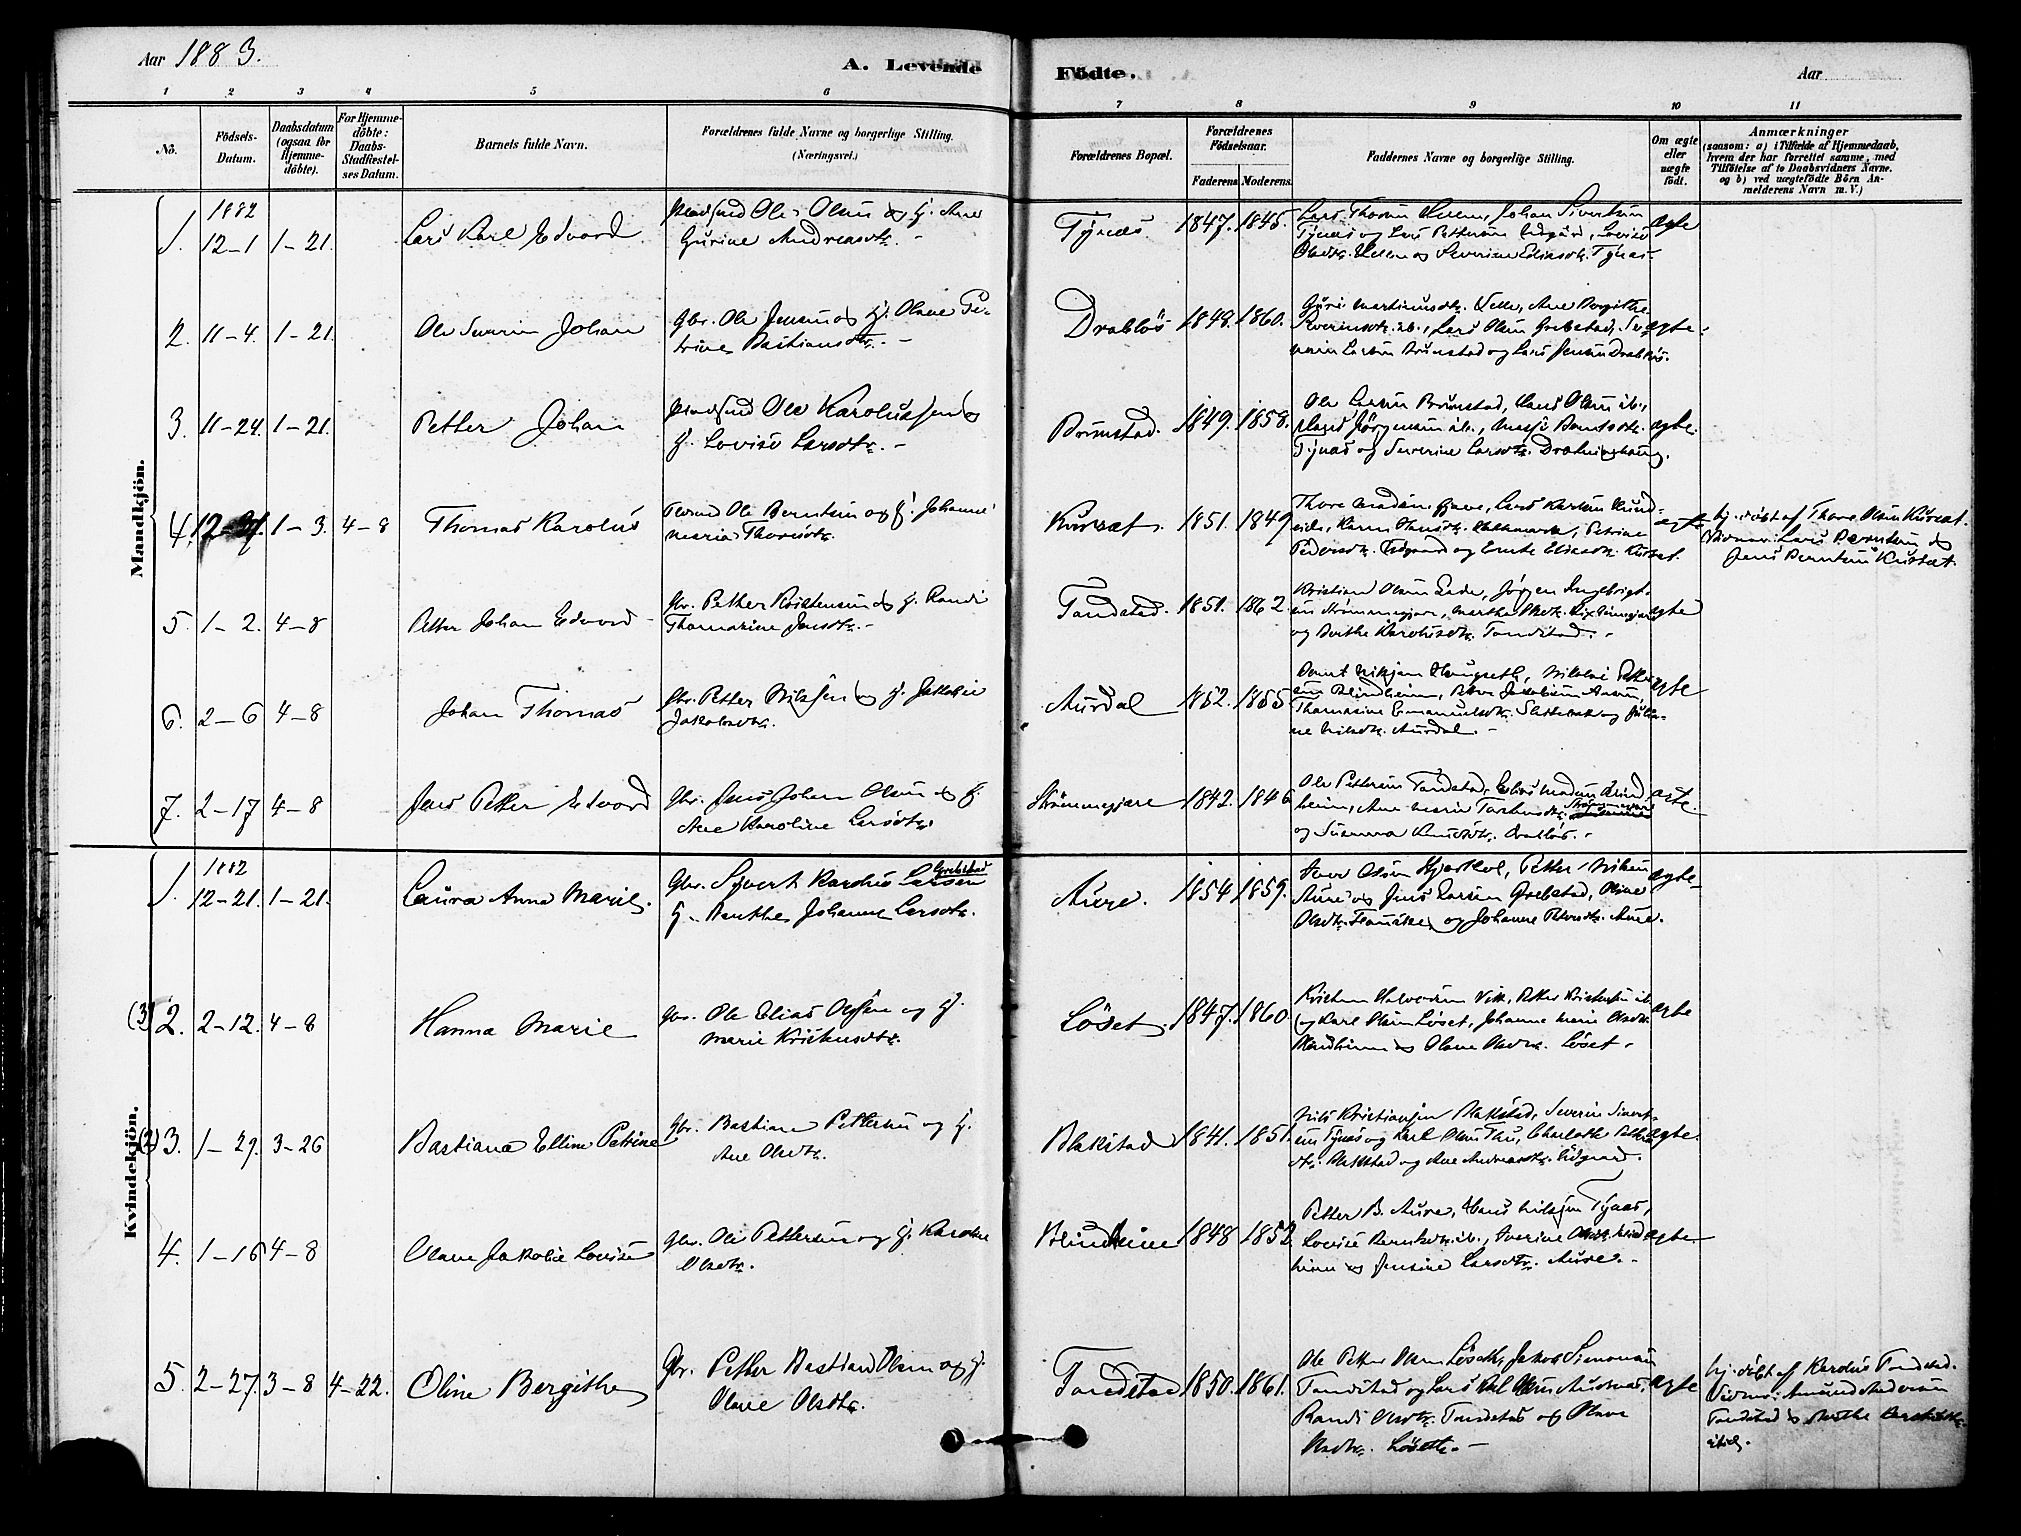 Aar 1883.
A. Levende
Födte.
Aar
1 2 3 4 5 6 7 8 9 10 11
Nö.
Födsels-Datum.
Daabsdatum (ogsaa for Hjemme-döbte).
For Hjemme-döbte: Daabs-Stadfæstel-ses Datum.
Barnets fulde Navn.
Forældrenes fulde Navne og borgerlige Stilling.
(Næringsvei.)
Forældrenes Bopæl.
Forældrenes Födselsaar.
Faderens. Moderens.
Faddernes Navne og borgerlige Stilling.
Om ægte eller uægte födt.
Anmærkninger
(saasom: a) i Tilfælde af Hjemmedaab,
hvem der har forrettet samme, med
Tilföielse af to Daabsvidners Navne.
og b) ved uægtefödte Börn An-
melderens Navn m. V.)
Mandkjön.
1882
1. 12-1 1-21. Lars Karl Edvard
Pladsmd Ole Olsen og H. Ane
Gurine Andreasdtr. -
Tynes 1847. 1845.
Lars Thoresen, Johan Sivertsen
Tynes og Lars Pettersen Eidgård, Lovise
Olsdtr. og Severine Eliasdtr. Tynes -
ægte
2. 11-4. 1-21. Ole Severin Johan
Gbr. Ole Jensen og H. Olave Pe-
trine Bastiansdtr. -
Drabløs 1848. 1860.
Guri Martinusdtr. Velle, Ane Bergithe
Severinsdtr. ib., Lars Olsen Grebstad, Se-
verin Larsen Brunstad og Lars Jensen Drabløs.
ægte
3. 11-24. 1-21. Petter Johan
Pladsmd Ole Karolussen og
H. Lovise Larsdtr. -
Brunstad. 1849. 1858.
Ole Larsen Brunstad, Hans Olsen ib.,
Jørgensen ib., Berntsdtr.
Tynes og Severine Larsdtr.
ægte.
4. 12-27. 1-3. 4-8 Thomas Karolus
Ole Berntsen og H. Johanne
Maria Thoresdtr.
Kurset. 1851. 1849
Thore, Lars Karlsen
Petrine
Pedersdtr. Eidgaard og Eliasdtr. Kurset.
ægte
hj. døbt af Thore Olsen Kurset.
Vidner: Lars Berntsen og
Jens Berntsen Kurset.
5. 1-2. 4-8 Petter Johan Edvard
Gbr. Petter Kristensen og H. Randi
Thomasine Jensdtr. -
Tandstad. 1851. 1862.
Kristian Olsen, Jørgen Ingebrigt-
sen Strømmegjære, Marthe Olsdtr.
og Berthe Karolusdtr. Tandstad. -
ægte
6. 2-6 4-8 Johan Thomas
Gbr. Petter Nilssen og H. Jakobie
Jakobsdtr.
Aurdal 1852. 1855
Bernt Nilssen Haugseth, Nikolai Petter-
sen Blindheim, Jakobsen
Thomasine Emanuelsdtr. og Julia-
ne Nilsdtr. Aurdal. -
ægte
7. 2-17 4-8 Jens Petter Edvard
Gbr. Jens Johan Olsen og H.
Ane Karoline Larsdtr.
Strømmegjære 1842. 1846
Ole Pettersen Tandstad, Elias Madsen Blind-
heim, Ane Marie
og Susanna Knudsdtr. Drabløs. -
ægte.
Kvindekjön.
1882
1. 12-21. 1-21. Laura Anna Marie.
Gbr. Syvert Karolus Larsen Grebstad
H. Benthe Johanne Larsdtr.
Aure. 1854 1859.
Iver Olsen Hjortdal, Petter Nilsen
Aure og Jens Larsen Grebstad, Oline
Olsdtr. og Johanne Petersdtr. Aure.
ægte
(3) 2. 2-12. 4-8 Hanna Marie
Gbr. Ole Elias Olsen og H.
Marie Kristensdtr.
Løset. 1847. 1860.
Kristen Halvorsen Vik, Petter Kristensen ib.
og Karl Olsen Løset, Johanne Marie Olsdtr.
Blindheim og Olave Olsdtr. Løset -
ægte
(2) 3. 1-29. 3-26 Bastiana Elline Petrine
Gbr. Bastian Pettersen og H.
Ane Olsdtr.
Blakstad 1841. 1851.
Nils Kristiansen Blakstad, Severin Sivert-
sen Tynes og Karl Olsen, Charlotte Petter
dtr. Blakstad og Ane Andreasdtr. Eidgaard.
ægte.
4. 1-16 4-8 Olave Jakobie Lovise
Gbr. Ole Pettersen og H. Karoline
Olsdtr.
Blindheim 1848 1852.
Petter B. Aure, Hans Nilssen Tynes,
Lovise Berntsdtr. ib., Severine Olsdtr. Blind-
heim og Jensine Larsdtr. Aure. -
ægte
5. 2-27. 3-8 4-22. Oline Bergithe
Gbr. Petter Bastian Olsen og H.
Olave Olsdtr.
Tandstad 1850. 1861.
Ole Petter Olsen Løseth, Jakob Simonsen
Tandstad og Lars Olsen,
Randi Olsdtr. Tandstad og Olave
Olsdtr. Løseth. -
ægte
hj. døbt af Karolus Tandstad.
Vidner: Amund Andersen
Tandstad og Berthe Karolusdtr.
ibid.